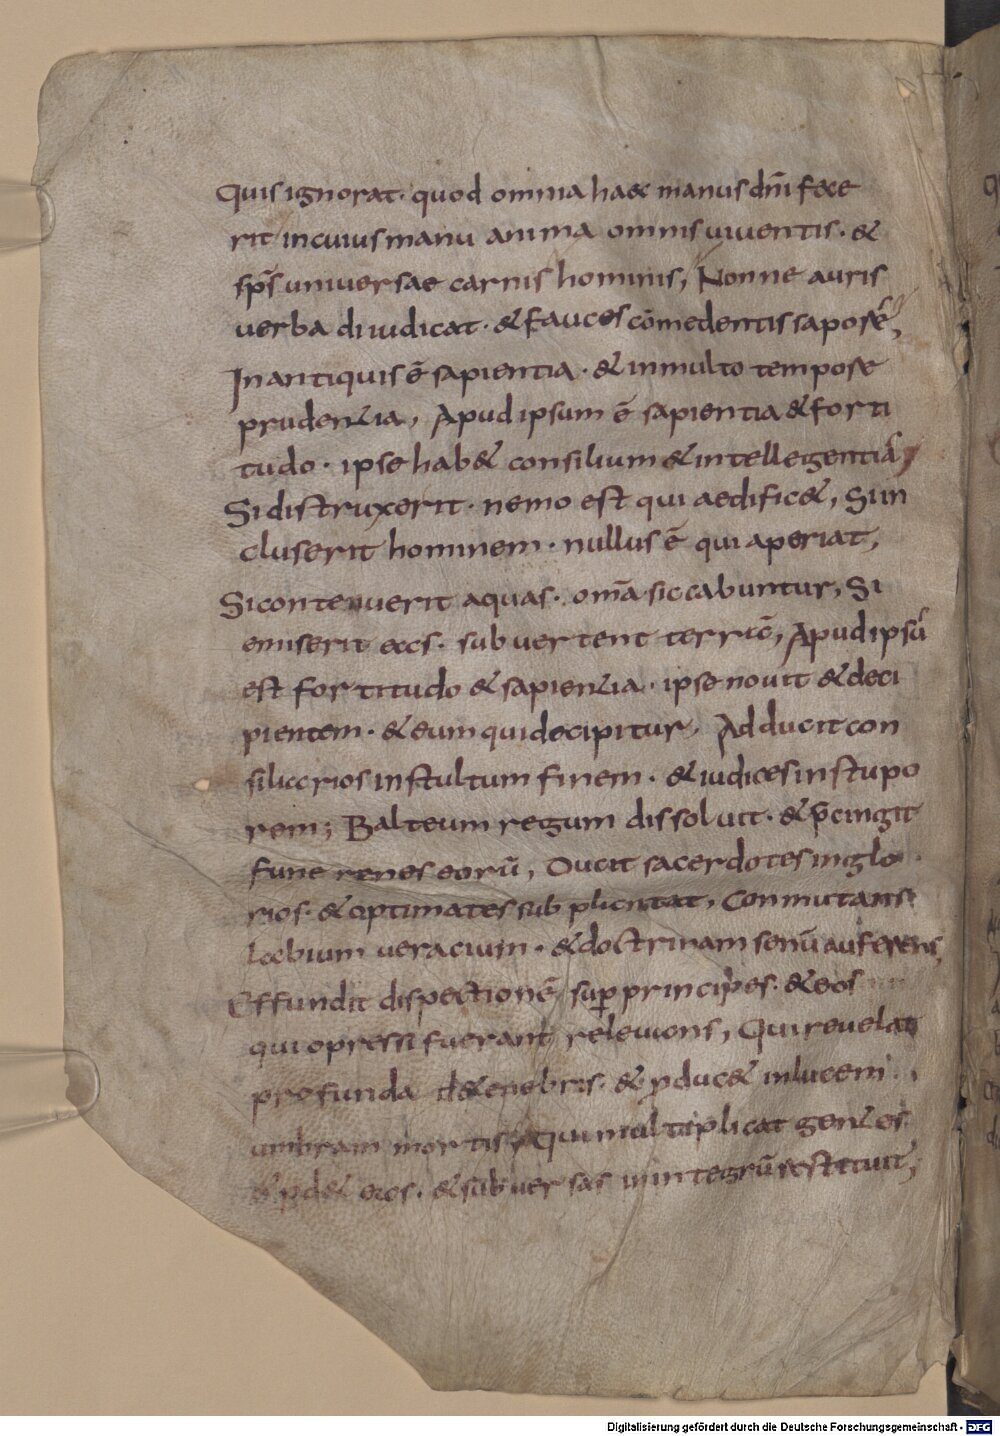 Quis ignorat· quod omnia haec manus dn̄i fece
rit in cuius manu anima omnis uiuentis· &
sp̄s uniuersae carnis hominis, Nonne auris
uerba diiudicat· & fauces cōmedentis saporē,
In antiquis ē sapientia· & in multo tempore
prudentia, Apud ipsum ē sapientia & forti
tudo· ipse hab& consilium & intellegentiā,
Si distruxerit· nemo est qui aedific&, Si in
cluserit hominem· nullus ē qui aperiat,
Si contenuerit aquas· om̄a siccabuntur, Si
emiserit eas· subuertent terrā, Apud ipsū
est fortitudo & sapientia· ipse nouit & deci
pientem· & eum qui decipitur, Adducit con
siliarios in stultum finem· & iudices in stupo
rem; Balteum regum dissoluit· & p̄cingit
fune renes eorū, Ducit sacerdotes inglo
rios· & optimates subplantat, Conmutans
labium ueracium· & doctrinam senū auferens,
Effundit dispectionē sup̱ principes· & eos
qui opressi fuerant releuans, Qui reuelat
profunda d&enebris· & ꝓduc& in lucem
umbram mortis, Qui multiplicat gentes
& ꝑd& eas· & subuersas in integrū restituit,
Digitalisierung gefördert durch die Deutsche Forschungsgemeinschaft - DFG